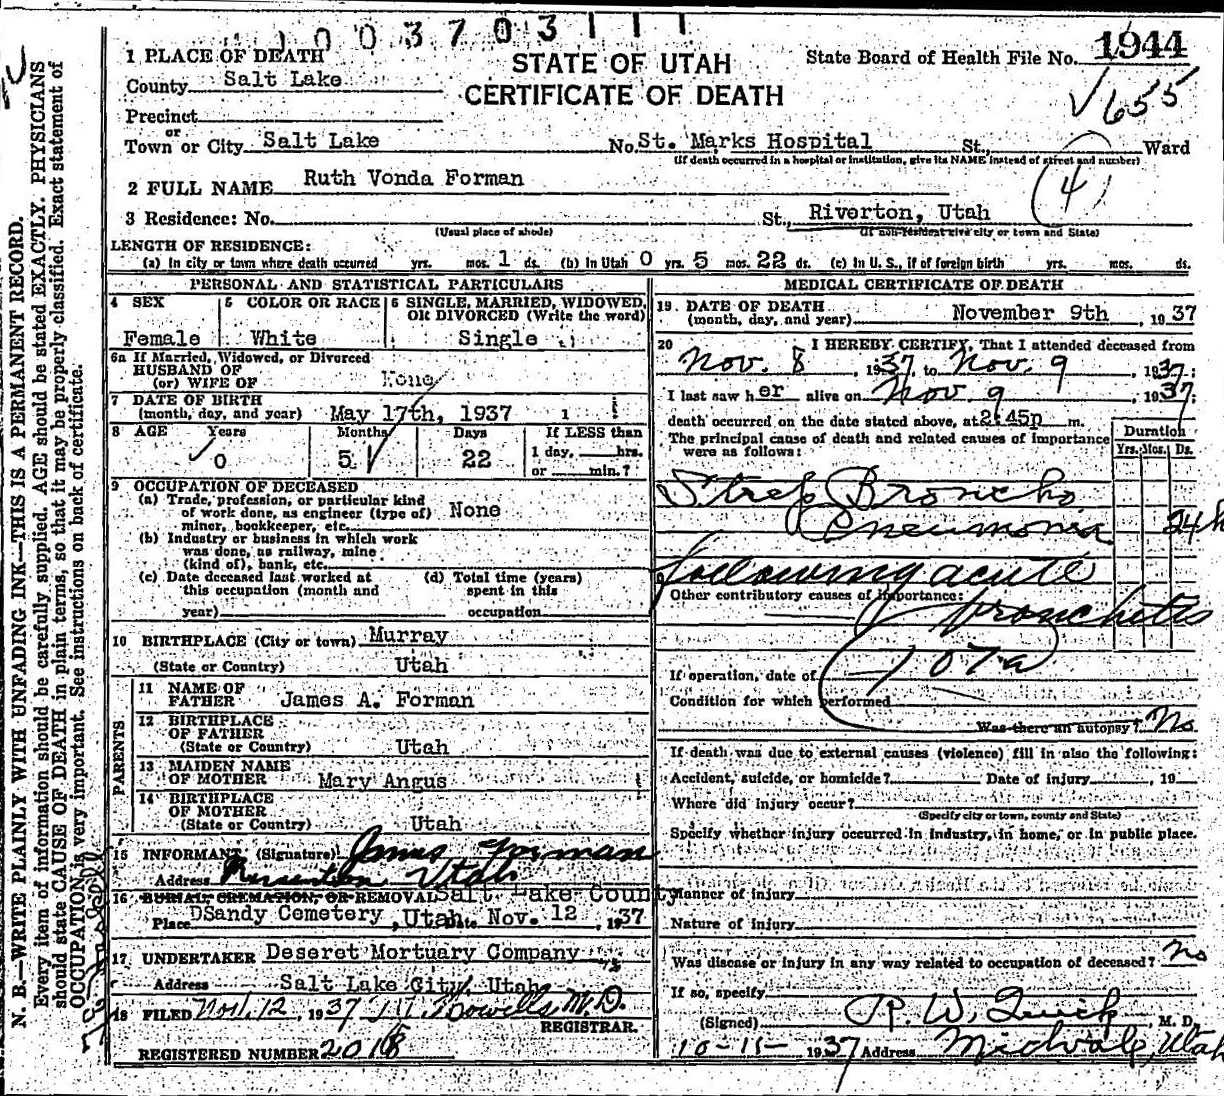 1003703111
1 PLACE OF DEATH
STATE OF UTAH
CERTIFICATE OF DEATH
State Board of Health File No. 1944
County Salt Lake
√655
Precinct
or
Town or City Salt Lake No. St. Marks Hospital St., Ward
(If death occurred in a hospital or institution, give its NAME instead of street and number)
2 FULL NAME Ruth Vonda Forman
(4)
3 Residence: No. St., Riverton, Utah
(Usual place of abode) (If non-resident give city or town and State)
LENGTH OF RESIDENCE:
(a) In city or town where death occurred yrs. mos. 1 ds. (b) In Utah 0 yrs. 5 mos. 22 ds. (c) In U. S., if of foreign birth yrs. mos. ds.
PERSONAL AND STATISTICAL PARTICULARS
4 SEX 5 COLOR OR RACE 6 SINGLE, MARRIED, WIDOWED, OR DIVORCED (Write the word)
Female White Single
6a If Married, Widowed, or Divorced
HUSBAND OF
(or) WIFE OF None
7 DATE OF BIRTH
(month, day, and year) May 17th, 1937 1
8 AGE Years Months Days If LESS than
0 5 22 1 day, hrs.
or min.?
9 OCCUPATION OF DECEASED
(a) Trade, profession, or particular kind
of work done, as engineer (type of) None
miner, bookkeeper, etc.
(b) Industry or business in which work
was done, as railway, mine
(kind of), bank, etc.
(c) Date deceased last worked at (d) Total time (years)
this occupation (month and spent in this
year) occupation
10 BIRTHPLACE (City or town) Murray
(State or Country) Utah
PARENTS
11 NAME OF
FATHER James A. Forman
12 BIRTHPLACE
OF FATHER
(State or Country) Utah
13 MAIDEN NAME
OF MOTHER Mary Angus
14 BIRTHPLACE
OF MOTHER
(State or Country) Utah
15 INFORMANT (Signature) James Forman
Address Riverton Utah
16 BURIAL, CREMATION, OR REMOVAL Salt Lake County
Place DSandy Cemetery, Utah Date Nov. 12, 1937
17 UNDERTAKER Deseret Mortuary Company
Address Salt Lake City, Utah
18 FILED Nov. 12, 1937 Howells M.D.
REGISTRAR.
REGISTERED NUMBER 2018
MEDICAL CERTIFICATE OF DEATH
19 DATE OF DEATH
(month, day, and year) November 9th, 1937
20 I HEREBY CERTIFY, That I attended deceased from
Nov. 8, 1937, to Nov. 9, 1937;
I last saw her alive on Nov. 9, 1937;
death occurred on the date stated above, at 2:45p m.
The principal cause of death and related causes of importance
were as follows:
Duration
Yrs. Mos. Ds.
Strep Broncho
Pneumonia 24h
following acute
Other contributory causes of importance:
bronchitis
107a
If operation, date of
Condition for which performed
Was there an autopsy? No
If death was due to external causes (violence) fill in also the following:
Accident, suicide, or homicide? Date of injury , 19
Where did injury occur?
(Specify city or town, county and State)
Specify whether injury occurred in industry, in home, or in public place.
Manner of injury
Nature of injury
Was disease or injury in any way related to occupation of deceased? No
If so, specify
(Signed) P. W. Quick, M. D.
10-15- 1937 Address Midvale, Utah
N. B.—WRITE PLAINLY WITH UNFADING INK—THIS IS A PERMANENT RECORD.
Every item of information should be carefully supplied. AGE should be stated EXACTLY. PHYSICIANS
should state CAUSE OF DEATH in plain terms, so that it may be properly classified. Exact statement of
OCCUPATION is very important. See instructions on back of certificate.